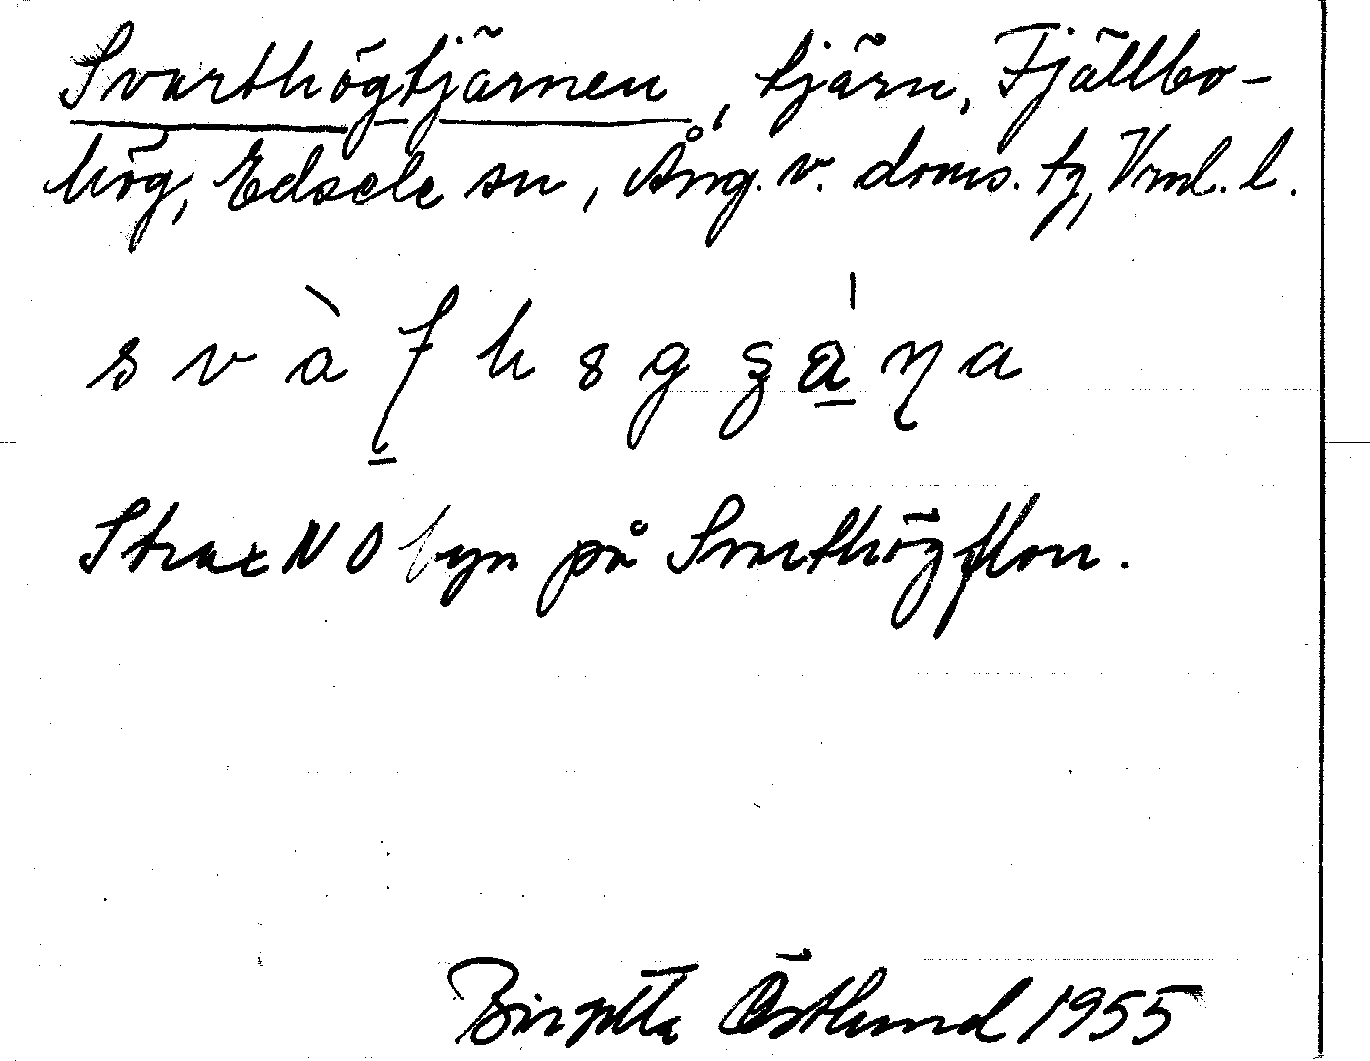 Svarthögtjärnen, tjärn, Fjällbo-
hög, Edsele sn, Ång. v. doms. tg, Vrnl. l.
Strax NO byn på Svarthögflon.
Birgitta Östlund 1955